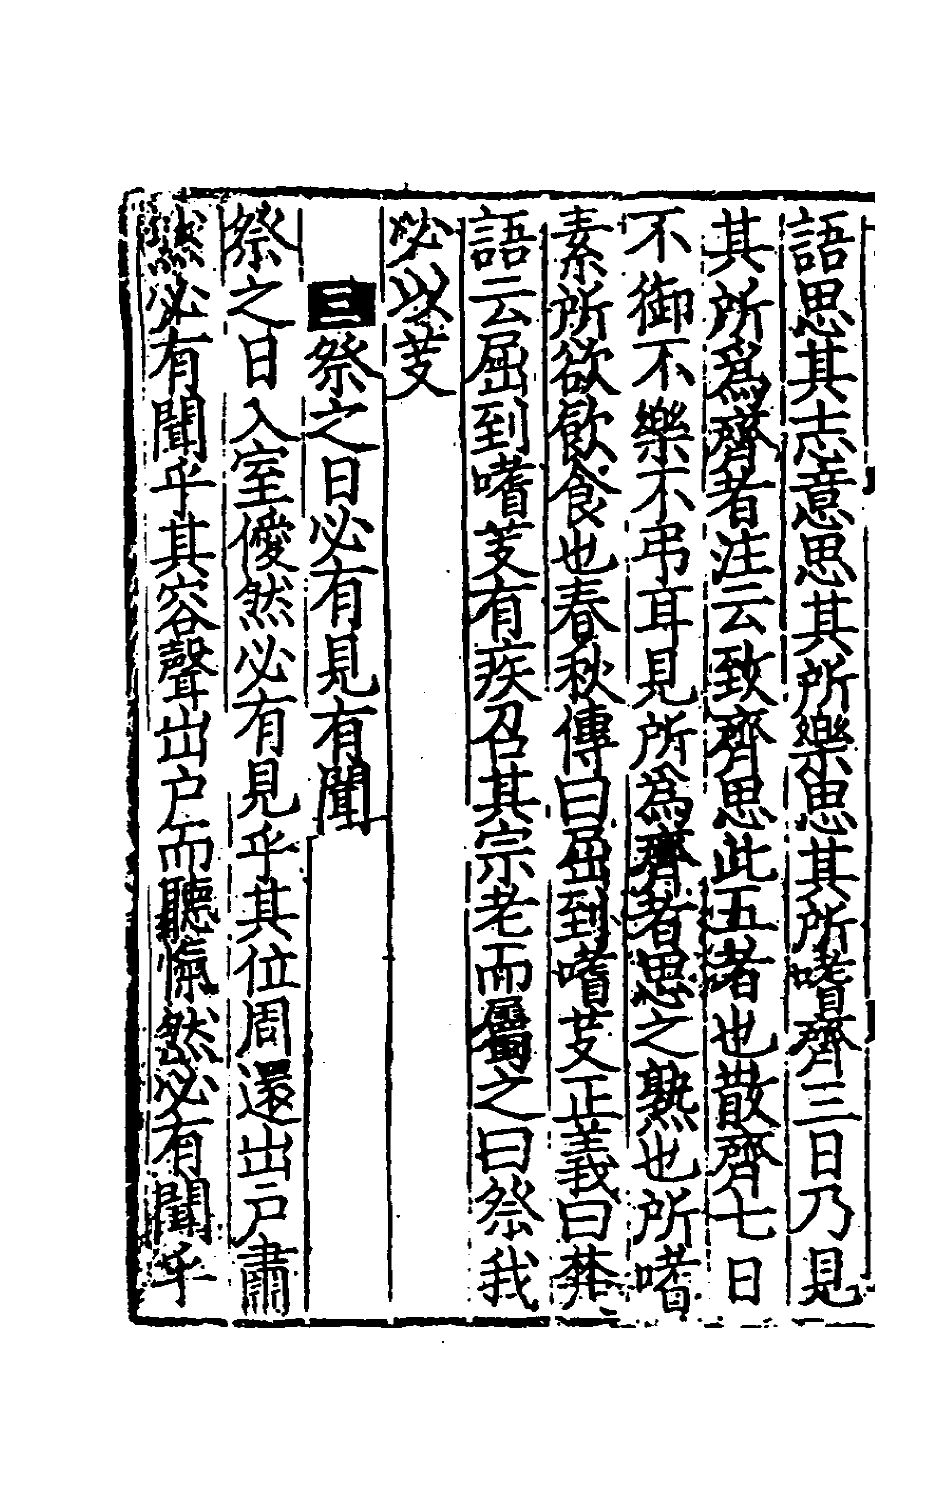 語思其志意思其所樂思其所嗜齊三日乃見
其所爲齊者注云致齊思此五者也散齊七日
不御不樂不弔耳見所爲齊者思之熟也所嗜
素所欲飲食也春秋傳曰屈到嗜芰正義曰楚
語云屈到嗜芰有疾召其宗老而屬之曰祭我
必以芰
三祭之日必有見有聞
祭之日入室僾然必有見乎其位周還出戶肅
然必有聞乎其容聲出户而聽愾然必有聞乎